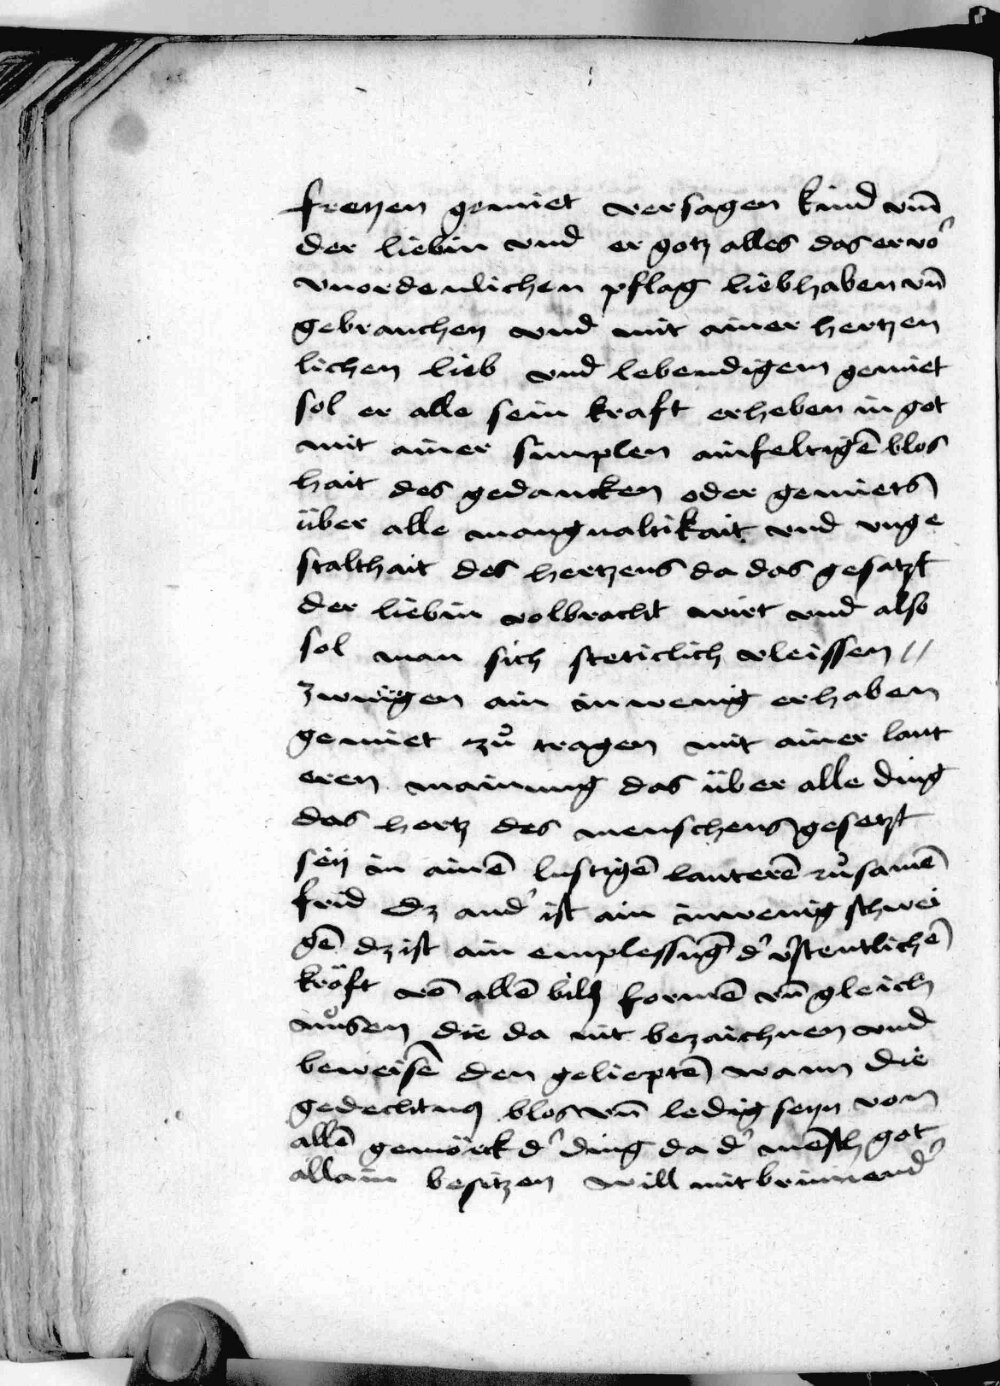 freyen gemiet versagen kind vm̄
der liebin vnd er gotz alles das er vo᷑
vnordenlichen pflag liebhaben vn̄
gebrauchen vnd mit ainer hertzen
lichen lieb vnd lebendigem gemiet
sol er alle sein kraft erheben in got
mit ainer simplen ainfeltigē blos
hait des gedancken oder gemiets
über alle mangualtikait vnd vnge
stalthait des hertzens da das gesatzt
der liebin volbracht wirt vnd also
sol man sich steticlich vleissen //
zwiigen ain inwenig erhaben
gemiet zů tragen mit ainer laut
eren mainung das über alle ding
das hertz des menschens gesetzt
seÿ in ainē lustigē lauterē růsamē
frid dz and᷑ ist ain inwenig schwei
gē dz ist ain emplessūg d᷑ v̄stentlichē
kröft vō allē bild formē vn̄ gleich
nůsen die da nit bezaichnen vnd
beweisē den gelieptē wann die
gedechtnus blos vn̄ ledig seyn von
allē gemörck d᷑ ding da d᷑ mēsch got
allain besitzen will mit brinnend᷑